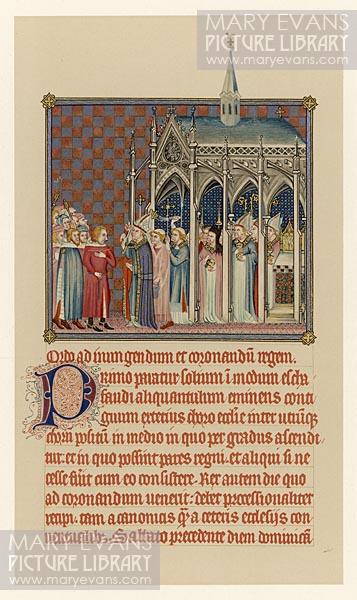 MARY EVANS
PICTURE LIBRARY
www.maryevans.com
Ordo ad inungendum et coronandū regem.
Primo paratur solium ī modum escha
faudi aliquantulum eminens conti
guum exterius choro ecclie inter utrūqꝫ
chorū positū in medio in quo per gradus ascendi
tur. et in quo possint pares regni. et aliqui si ne
cesse fūit cum eo consistere. Rex autem die quo
ad coronandum uenerit: debet processionaliter
recipi. tam a canonicis qͣ a ceteris ecclesijs con
uentualibꝫ. Sabbato precedente diem dominicā
MARY EVANS
PICTURE LIBRARY
www.maryevans.com